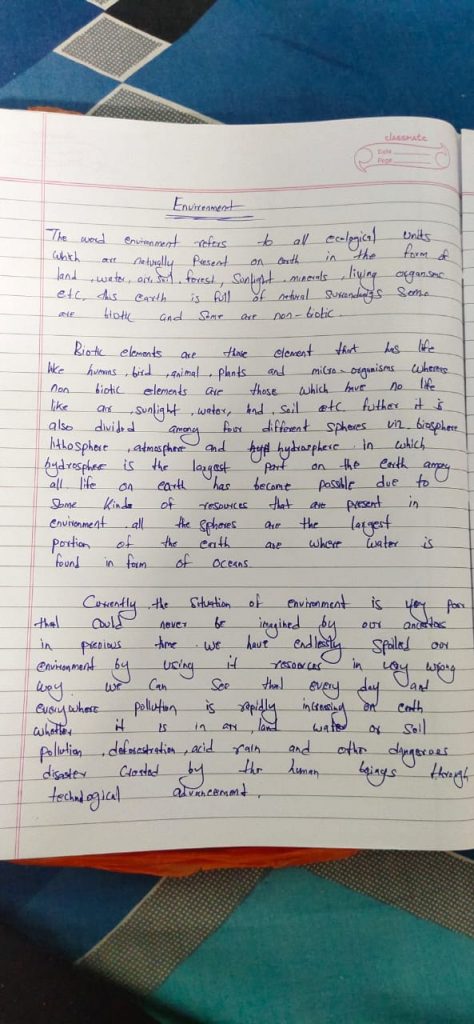 classmate
Date
Page
Environment
The word environment refers to all ecological units
which are naturally Present on earth in the form of
land, water, air, soil, forest, Sunlight, minerals, living organisms
etc, this earth is full of natural surrondings Some
are biotic and Some are non-biotic.
Biotic elements are those element that has life
like humans, bird, animal, plants and micro-organisms whereas
non biotic elements are those which have no life
like air, sunlight, water, land, soil etc. futher it is
also divided among four different spheres viz. biosphere
lithosphere, atmosphere and hydrosphere in which
hydrosphee is the largest part on the earth among
all life on earth has become possble due to
Some kinds of resources that are present in
environment. all the spheres are the largest
portion of the earth are where water is
found in form of oceans.
Currently the Situation of environment is very poor
that could never be imagined by our ancestors
in precious time. we have endlessly Spoiled our
environment by using it resources in very wrong
way. we can See that every day and
everywhere pollution is rapidly increasing on earth
whether it is in air, land water or soil
pollution, deforestration, acid rain and other dangerous
disaster Created by the human beings through
technological advancement.